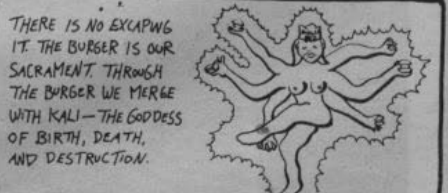 THERE IS NO EXCAPING
IT. THE BURGER IS OUR
SACRAMENT. THROUGH
THE BURGER WE MERGE
WITH KALI—THE GODDESS
OF BIRTH, DEATH,
AND DESTRUCTION.